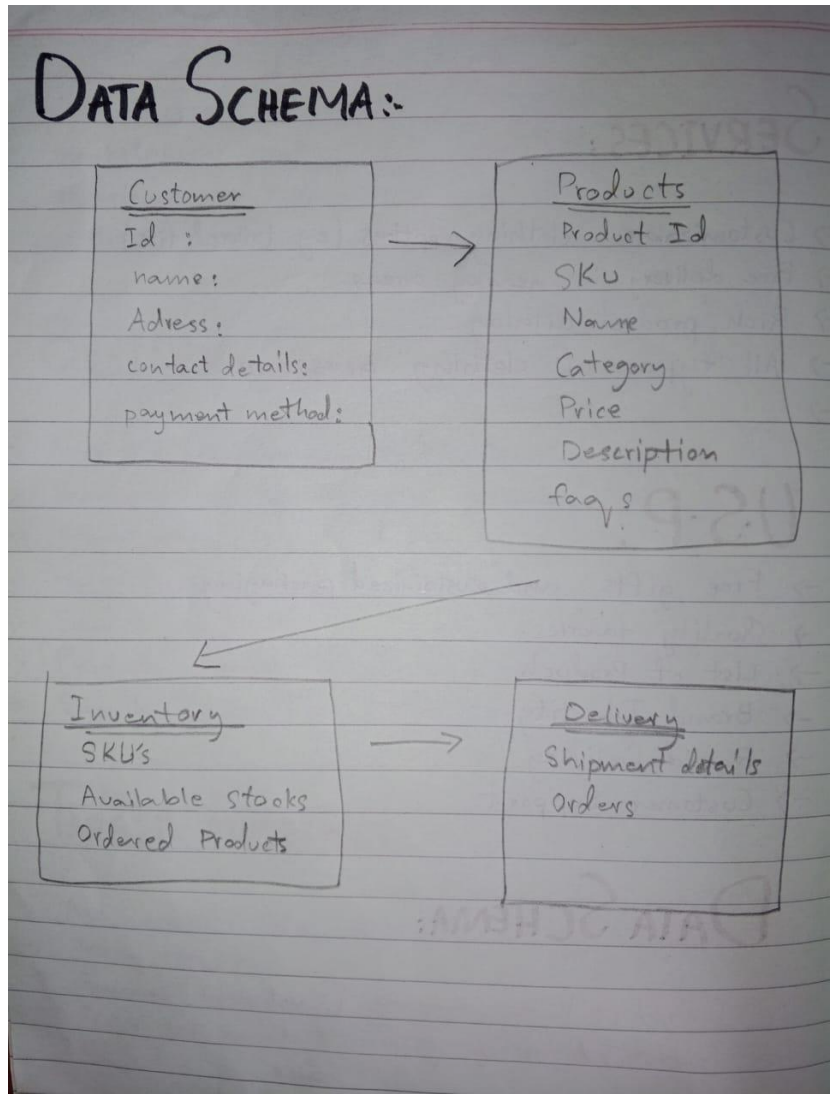 DATA SCHEMA:-
Customer
Id :
name :
Adress :
contact details:
payment method:
Products
Product Id
SKU
Name
Category
Price
Description
faq s
Inventory
SKU's
Available stocks
Ordered Products
Delivery
Shipment details
Orders